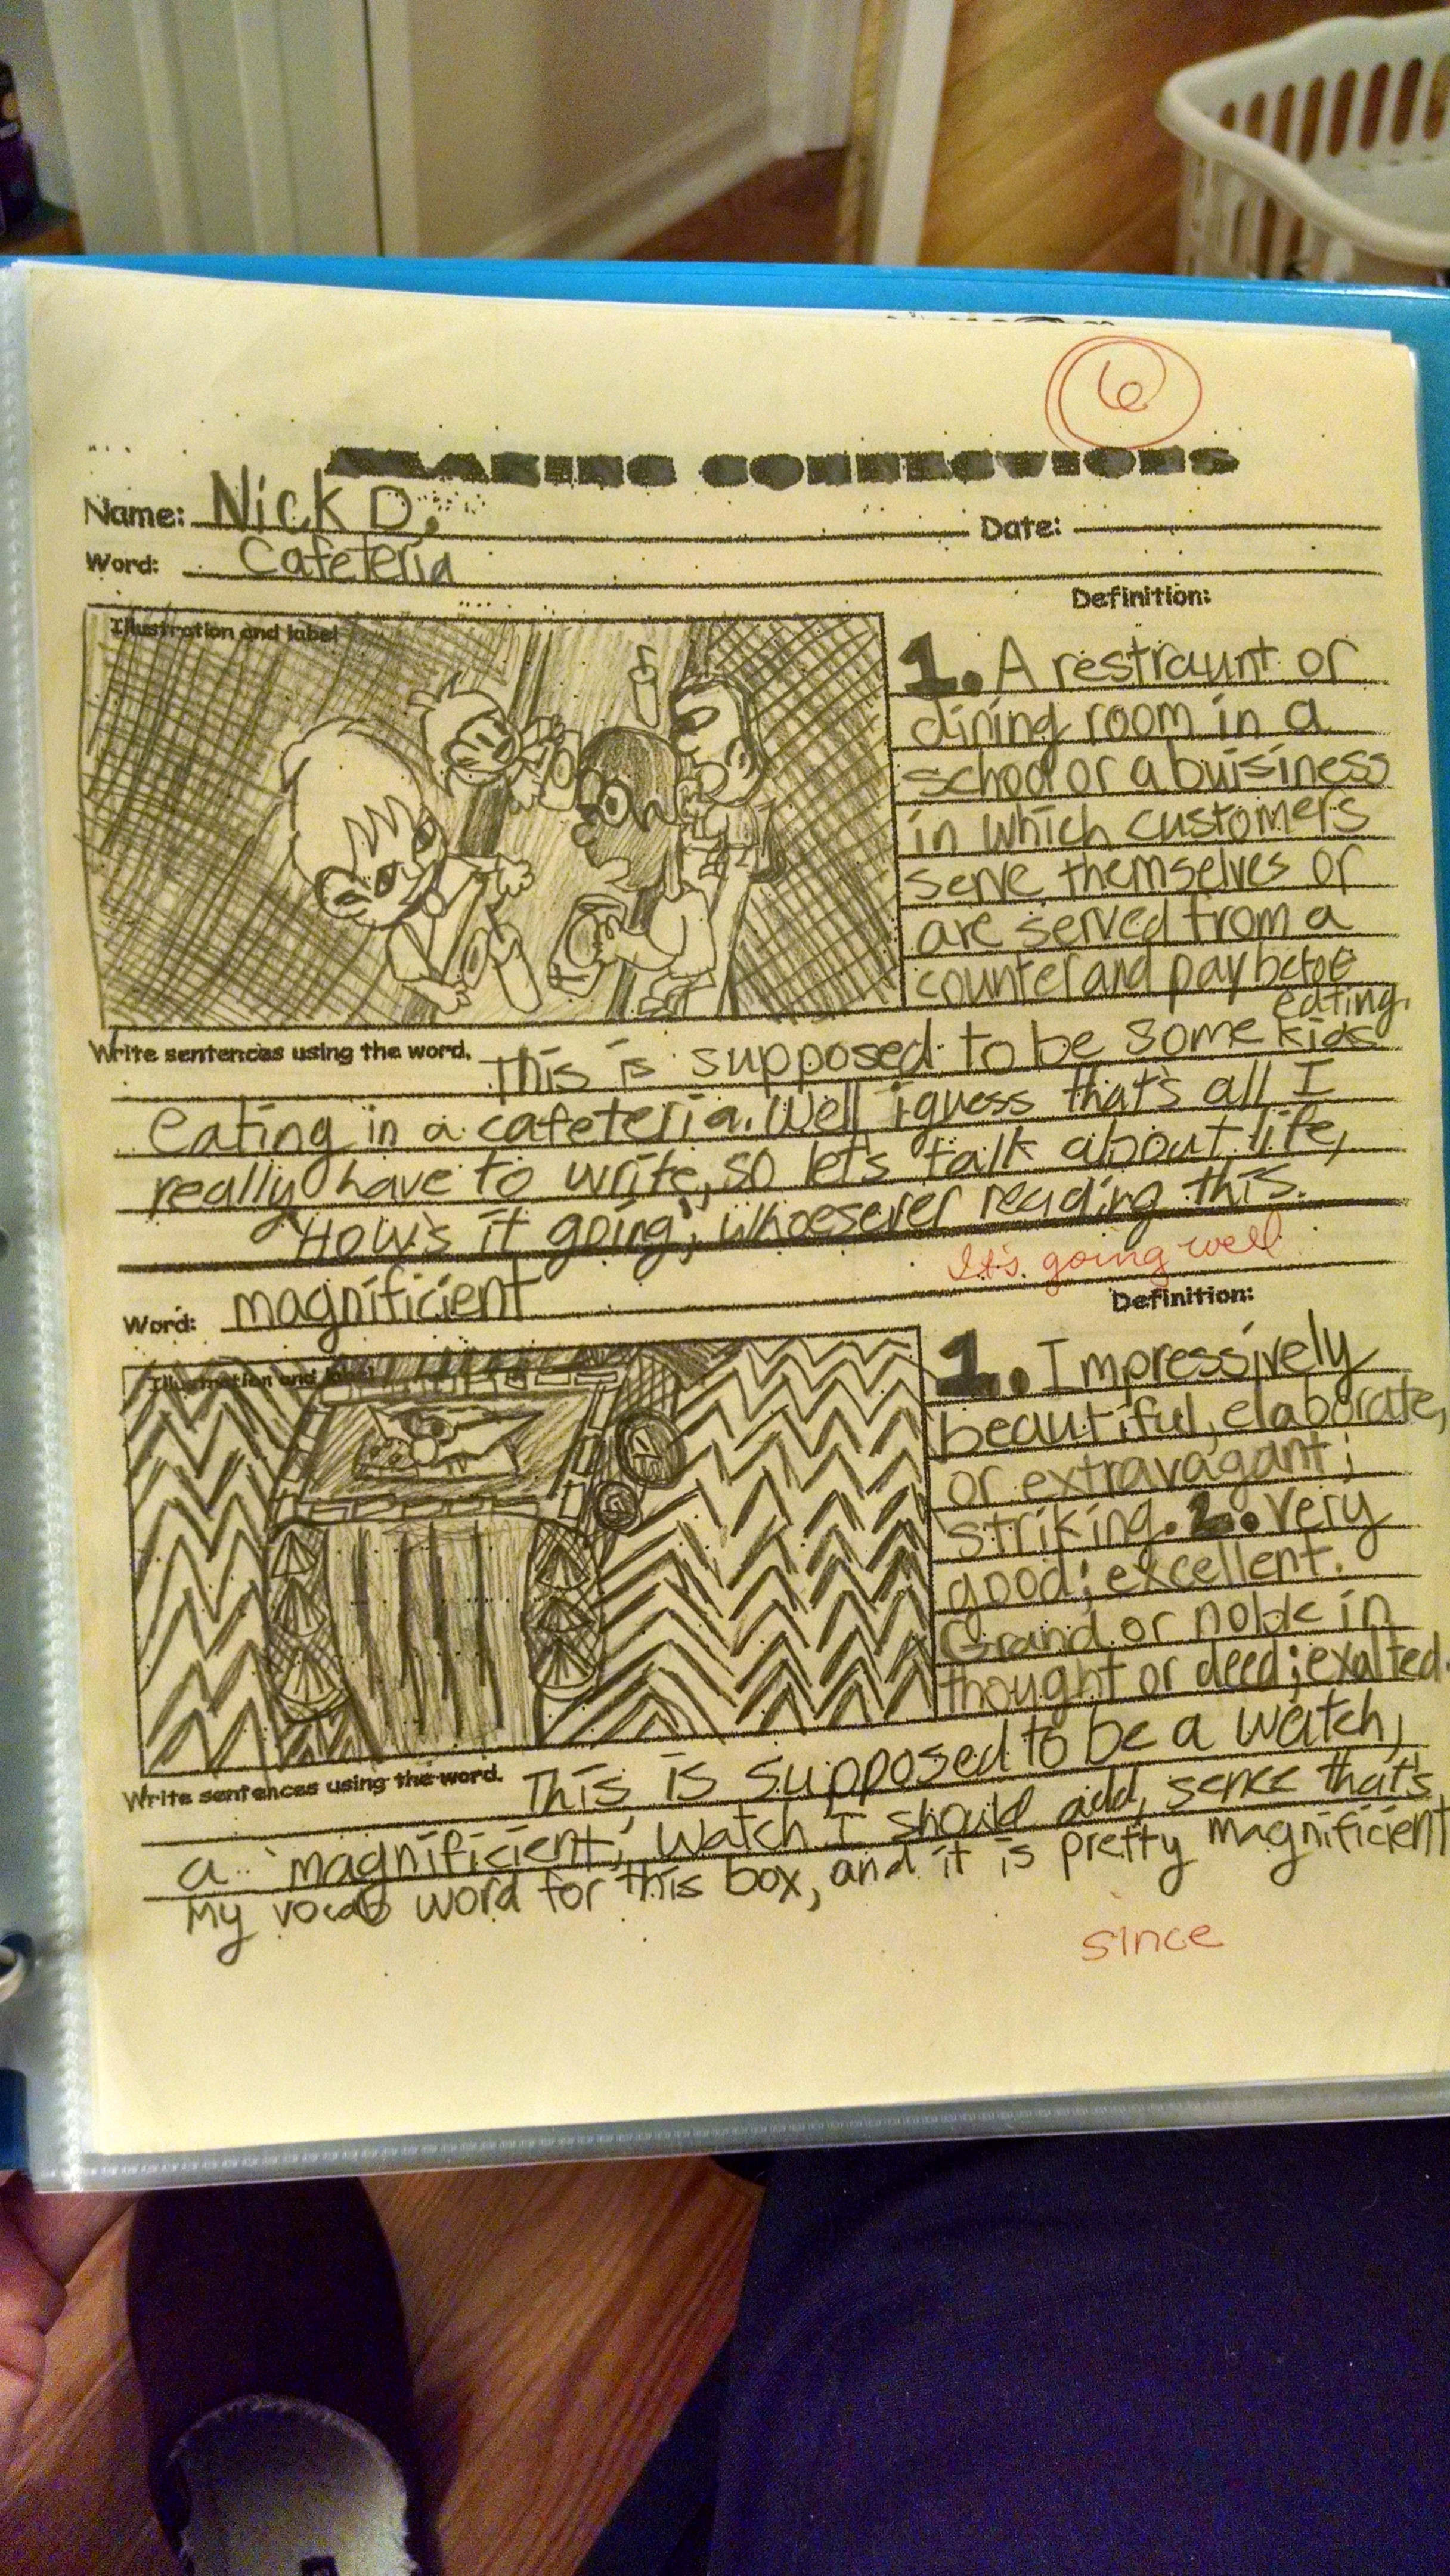 6
MAKING CONNECTIONS
Name: Nick D. Date:
Word: Cafeteria
Definition:
Illustration and label
1. A restraunt or
dining room in a
school or a buisiness
in which customers
serve themselves or
are served from a
counter and pay before
eating.
Write sentences using the word. This is supposed to be some kids
eating in a cafeteria. Well iguess that's all I
really have to write, so let's talk about life,
"How's it going", whoesever reading this.
It's going well
Word: magnificient
Definition:
Illustration and label
1. Impressively
beautiful, elaborate,
or extravagant;
striking. 2. Very
good; excellent.
Grand or noble in
thought or deed; exalted.
Write sentences using the word. This is supposed to be a watch,
a 'magnificient,' watch I should add, sence that's
my vocab word for this box, and it is pretty magnificient
since